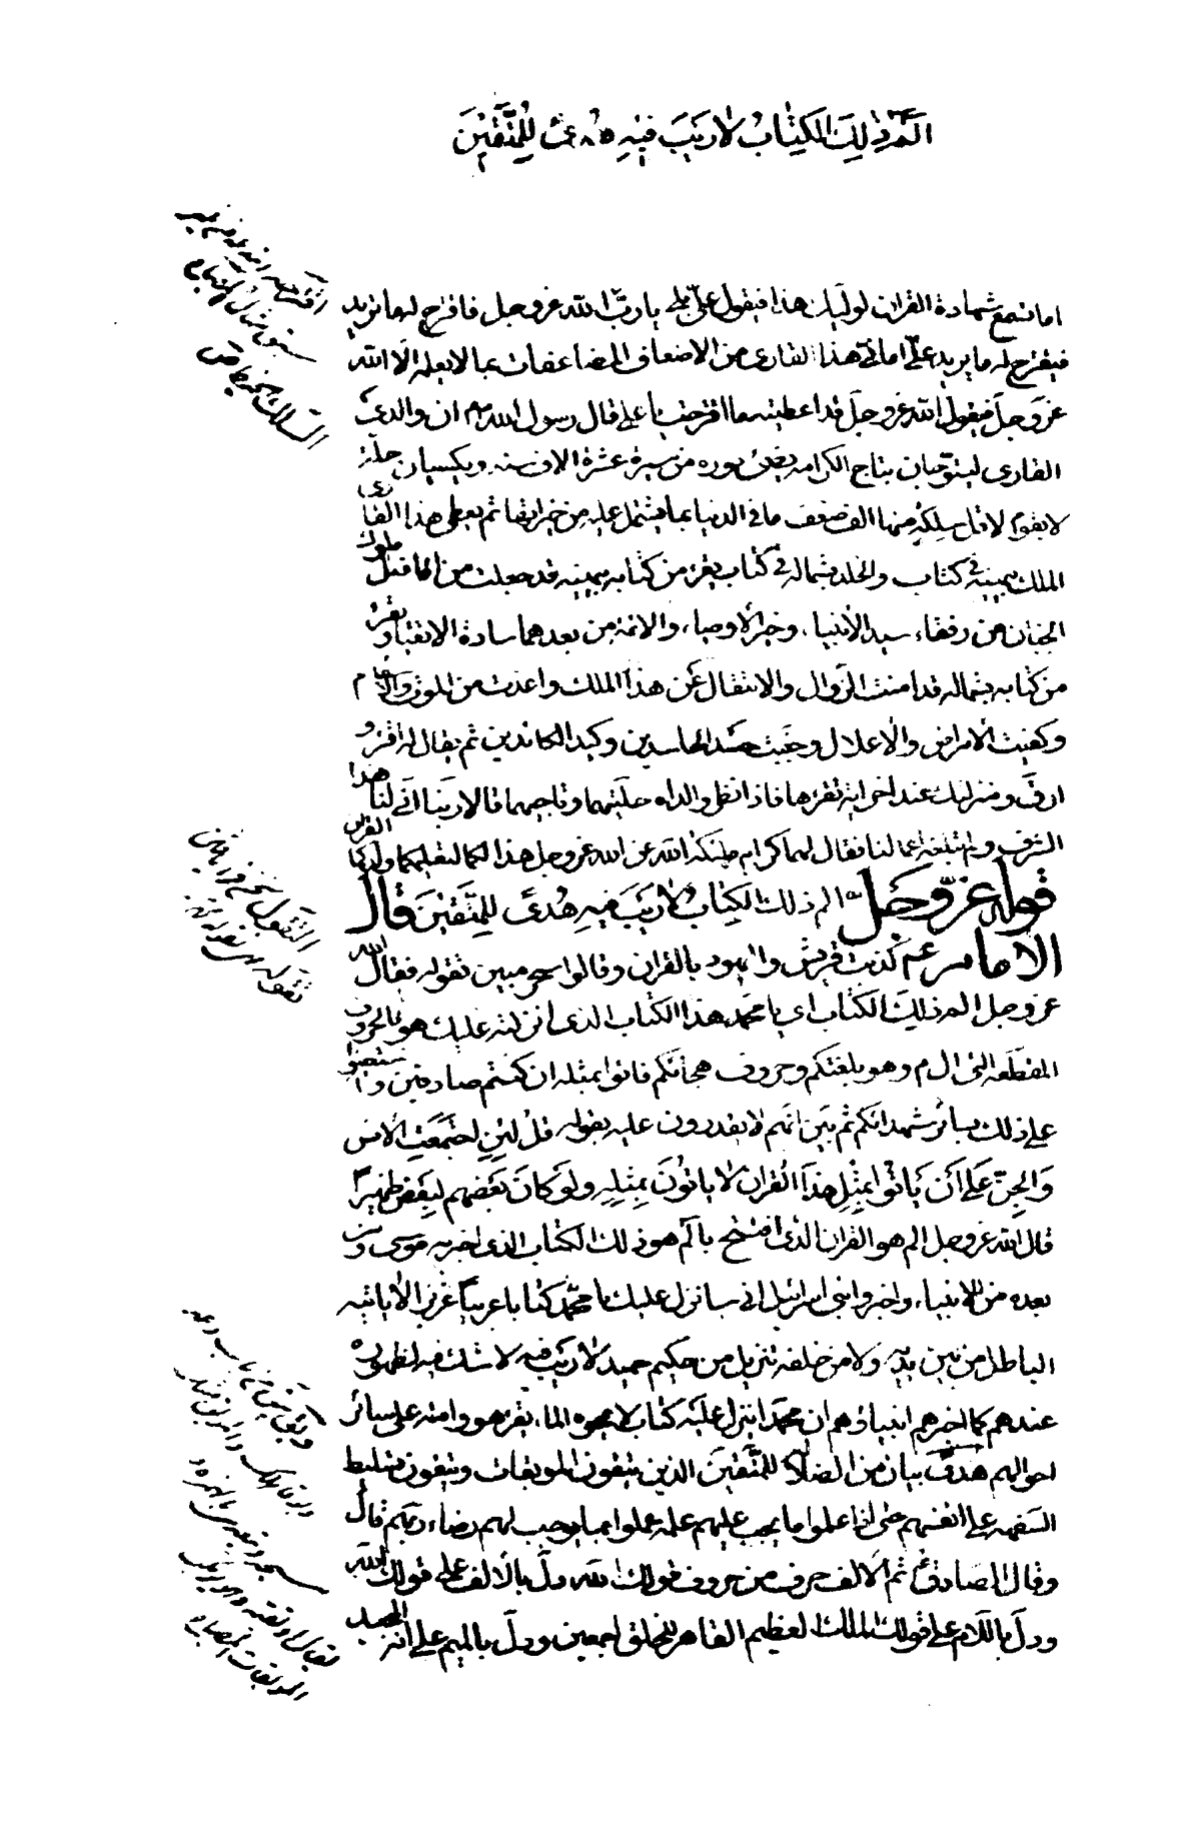 الٓمٓ ذٰلِكَ الْكِتٰابُ لٰا رَيْبَ فِيْهِ هُدىً لِلْمُتَّقِيْنَ
اما تسمع شهادة القران لوليك هذا فيقول على بلى يا رب الله عز وجل فاقترح له ما تريد
فيقترح له ما يريد على امانى هذا القارى من الاضعاف المضاعفات بما لا يعلمه الا الله
عز وجل فيقول الله عز وجل قد اعطيته ما اقترحت يا على قال رسول الله ص ان والدى
القارى ليتوجان بتاج الكرامه يضئ نوره من مسيرة عشرة الاف سنه ويكسيان حلة
لا يقوم لاقل سلك منها الف ضعف ما فى الدنيا بما يشتمل عليه من خيراتها ثم يعطى هذا القارى
الملك بيمينه فى كتاب والخلد بشماله فى كتاب يقرء من كتابه بيمينه قد جعلت من افاضل ملوك
الجنان من رفقاء سيد الانبياء وخير الاوصياء والائمة من بعدهما سادة الاتقياء ويقرء
من كتابه بشماله قد امنت الزوال والانتقال عن هذا الملك واعذت من الموت والاسقام
وكفيت الامراض والاعلال وجنبت حسد الحاسدين وكيد الكائدين ثم يقال له اقرء و
ارق ومنزلك عند اخر اية تقرءها فاذا نظر والداه حليتهما وتاجيهما قالا ربنا انى لنا هذا
الشرف ولم تبلغه اعمالنا فقال لهما كرام ملائكة الله عن الله عز وجل هذا لكما لتعليمكما ولدكما القران
قوله عز وجل الم ذلك الكتاب لا ريب فيه هدى للمتقين قال
الامام ع كذبت قريش واليهود بالقران وقالوا سحر مبين تقوله فقال الله
عز وجل الم ذلك الكتاب اى يا محمد هذا الكتاب الذى انزلته عليك هو بالحروف
المقطعه التى ال م وهو بلغتكم وحروف هجائكم فاتوا بمثله ان كنتم صادقين واستعينوا
على ذلك بسائر شهدائكم ثم بين انهم لا يقدرون عليه بقوله قل لئن اجتمعت الانس
والجن على ان ياتوا بمثل هذا القران لا ياتون بمثله ولو كان بعضهم لبعض ظهيرا
قال الله عز وجل الم هو القران الذى افتتح بالم هو ذلك الكتاب الذى اخبر به موسى ومن
بعده من الانبياء واخبروا بنى اسرائيل انى سانزل عليك يا محمد كتابا عربيا عزيزا لا ياتيه
الباطل من بين يديه ولا من خلفه تنزيل من حكيم حميد لا ريب فيه لا شك فيه لظهوره
عندهم كما اخبرهم انبياؤهم ان محمدا ينزل عليه كتاب لا يمحوه الماء يقرءه هو وامته على سائر
احوالهم هدى بيان من الضلالة للمتقين الذين يتقون الموبقات ويتقون تسليط
السفه على انفسهم حتى اذا علموا ما يجب عليهم علمه عملوا بما يوجب لهم رضاء ربهم قال
وقال الصادق ع ثم الالف حرف من حروف قولك الله دل بالالف على قولك الله
ودل باللام على قولك الملك العظيم القاهر للخلق اجمعين ودل بالميم على انه المجيد